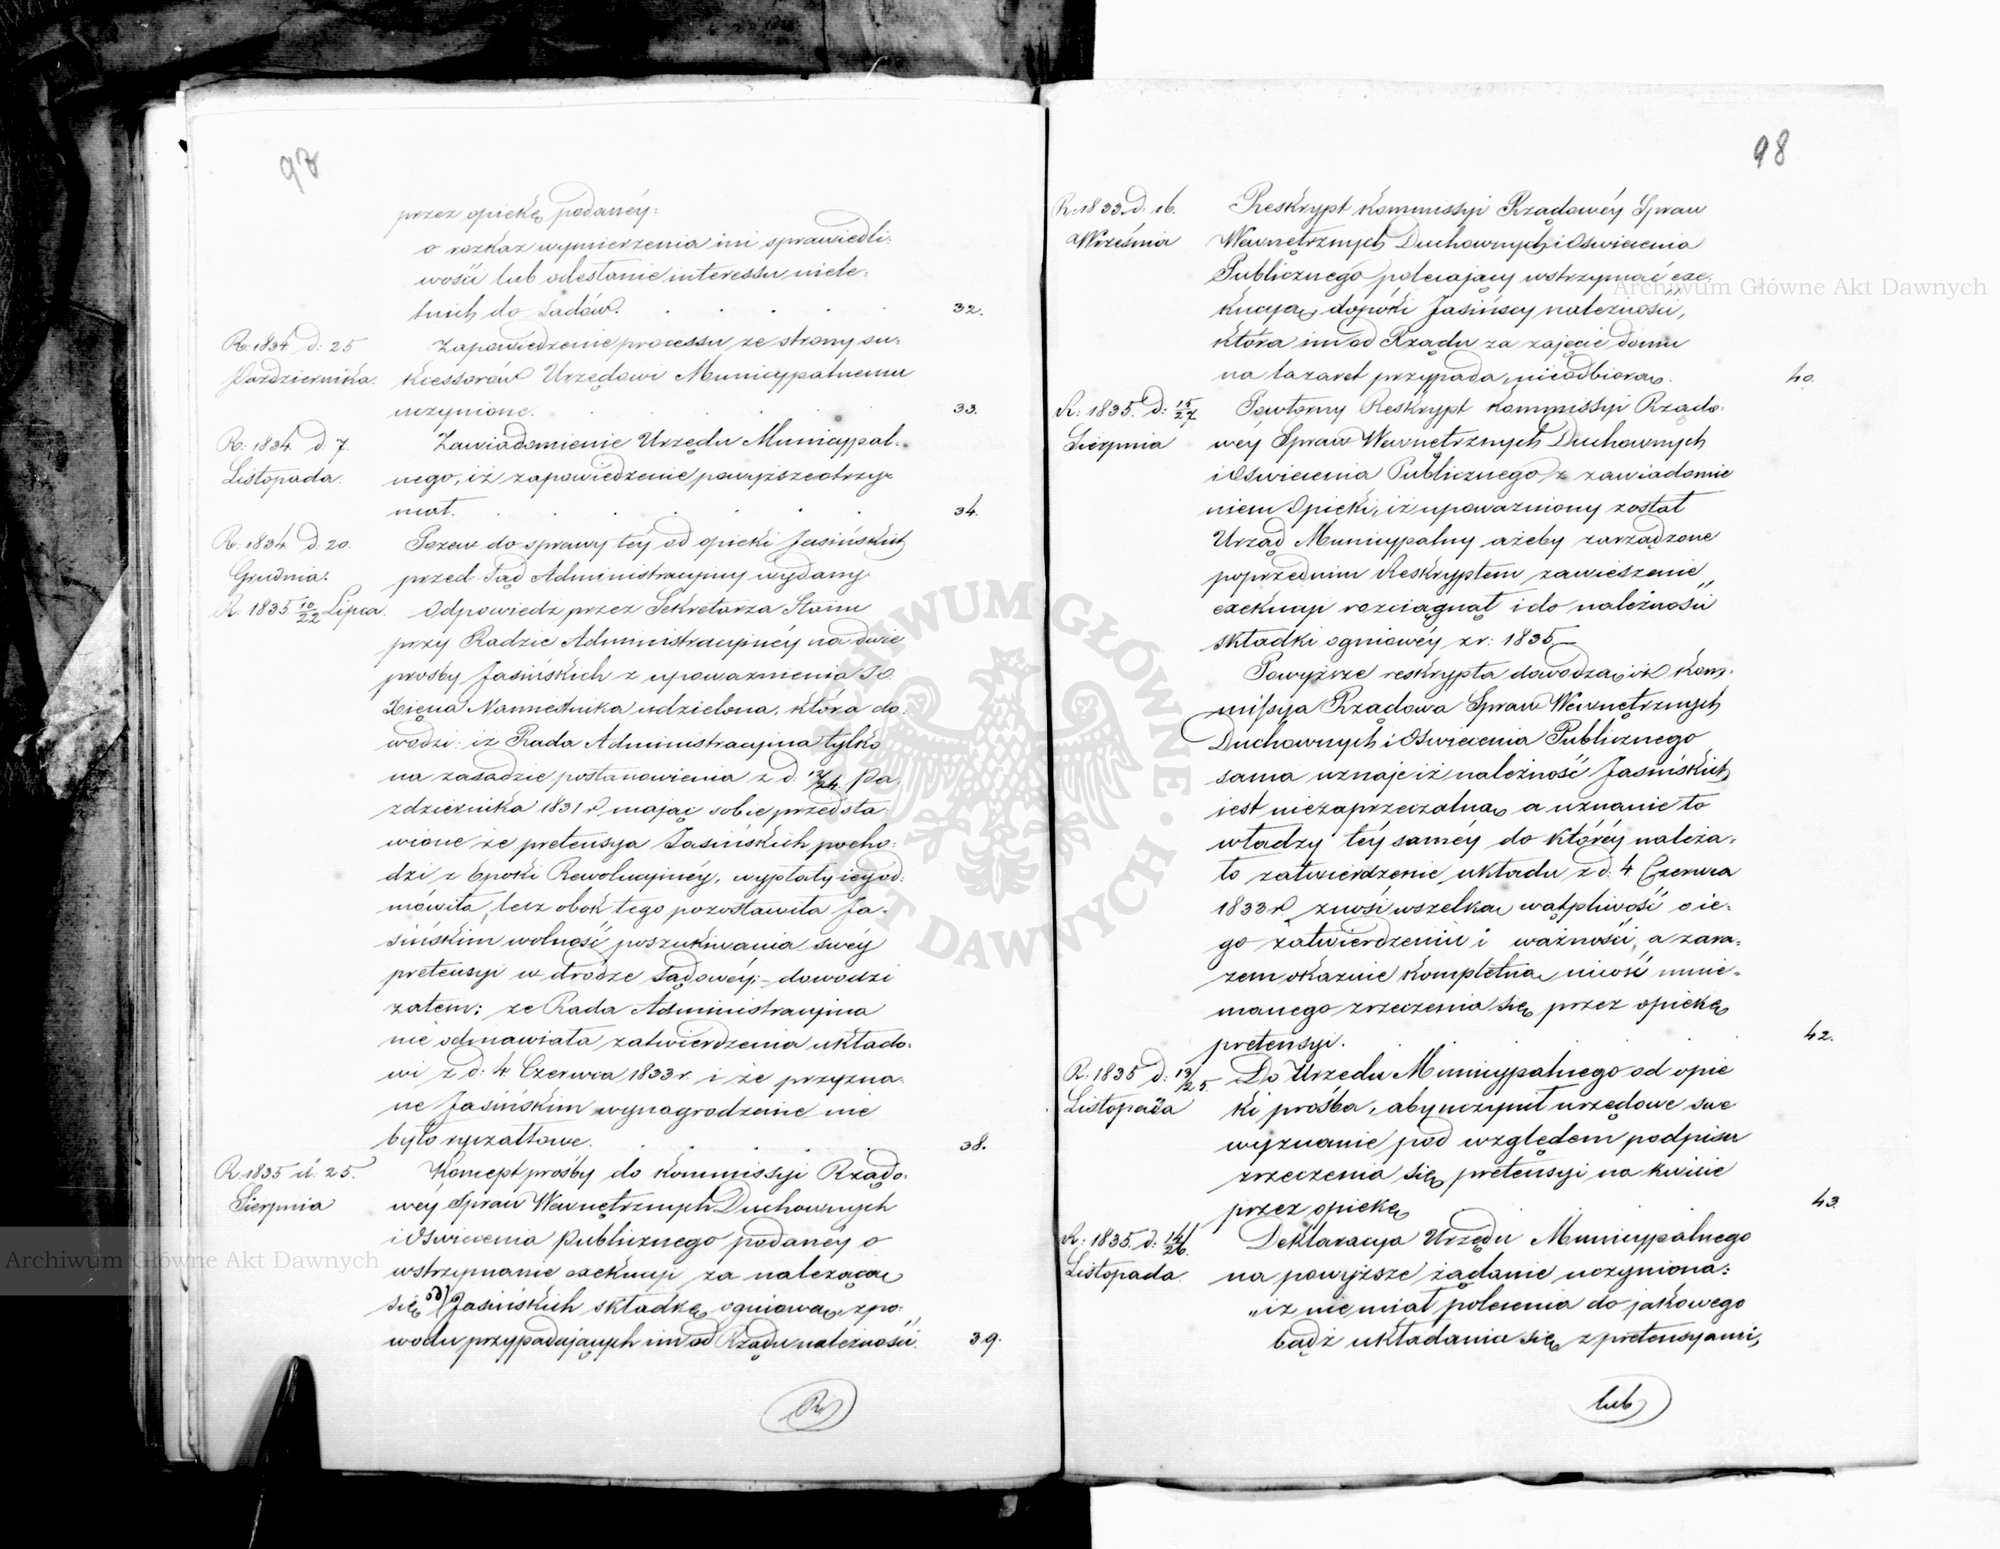 97
przez opiekę podanéy:
o rozkaz wymierzenia im sprawiedli-
wości lub odesłanie interessu niele-
tnich do Sądów. 32.
R: 1834 d: 25 Zapowiedzenie processu ze strony suk-
Października. kcessorów Urzędowi Municypalnemu
uczynione. 33.
R: 1834 d. 7. Zawiadomienie Urzędu Municypal-
Listopada. nego, iż zapowiedzenie powyższe otrzy-
mał. 34.
R: 1834 d: 20. Pozew do sprawy téy od opieki Jasińskich
Grudnia. przed Sąd Administracyiny wydany
R: 1835 10/22 Lipca. Odpowiedz przez Sekretarza Stanu
przy Radzie Administracyinéy na dwie
prośby Jasińskich z upoważnienia JO.
Xięcia Namiestnika udzielona, która do-
wodzi: iż Rada Administracyina tylko
na zasadzie postanowienia z d. 12/24 Pa-
zdziernika 1831 r. mając sobie przedsta-
wione że pretensya Jasińskich pocho-
dzi z Epoki Rewolucyinéy, wypłaty iey od-
mówiła, lecz obok tego pozostawiła Ja-
sińskim wolność poszukiwania swéy
pretensyi w drodze Sądowéy; dowodzi
zatem; że Rada Administracyina
nie odmawiała zatwierdzenia układo-
wi z d: 4 Czerwca 1833 r. i że przyzna-
ne Jasińskim wynagrodzenie nie
było ryczałtowe. 38.
R: 1835 d: 25. Koncept prośby do Kommissyi Rządo-
Sierpnia wéy Spraw Wewnętrznych Duchownych
i Oświecenia Publicznego podanéy o
wstrzymanie exekucyi za należącą
się od Jasińskich składkę ogniową z po-
wodu przypadających im od Rządu należności. 39.
98
R: 1833 d. 16. Reskrypt Kommissyi Rządowéy Spraw
Września Wewnętrznych Duchownych i Oświecenia
Publicznego polecający wstrzymać exe-
kucyą, dopóki Jasińscy należności,
która im od Rządu za zajęcie domu
na lazaret przypada, nieodbiorą. 40.
R: 1835. d: 15/27 Powtórny Reskrypt Kommissyi Rządo-
Sierpnia wéy Spraw Wewnętrznych Duchownych
i Oświecenia Publicznego z zawiadomie
niem Opieki, iż upoważniony został
Urząd Municypalny ażeby zarządzone
poprzednim Reskryptem zawieszenie
exekucyi rozciągnął i do należności
składki ogniowéy z r: 1835
Powyższe reskrypta dowodzą iż Kom-
missya Rządowa Spraw Wewnętrznych
Duchownych i Oświecenia Publicznego
sama uznaje iż należność Jasińskich
jest niezaprzeczalną, a uznanie to
władzy téy saméy do któréy należa-
ło zatwierdzenie układu z d: 4 Czerwca
1833 r. znosi wszelką wątpliwość o ie-
go zatwierdzeniu i ważności, a zara-
zem okazuie kompletną nicość mnie-
manego zrzeczenia się przez opiekę
pretensyi. 42.
R: 1835 d: 13/25. Do Urzędu Municypalnego od opie
Listopada ki prośba, aby uczynił urzędowe swe
wyznanie pod względem podpisu
zrzeczenia się pretensyi na kwicie
przez opiekę 43.
R: 1835. d: 14/26. Deklaracya Urzędu Municypalnego
Listopada. na powyższe żądanie uczyniona:
„iż nie miał polecenia do jakowego
bądź układania się z pretensyami,
lub
Archiwum Główne Akt Dawnych
Archiwum Główne Akt Dawnych
ARCHIWUM GŁÓWNE AKT DAWNYCH